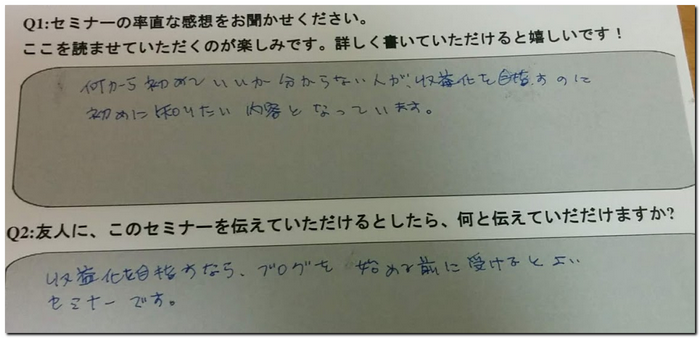 Q1:セミナーの率直な感想をお聞かせください。
ここを読ませていただくのが楽しみです。詳しく書いていただけると嬉しいです！
何から初めていいか分からない人が、収益化を目指すのに
初めに知りたい内容となっています。
Q2:友人に、このセミナーを伝えていただけるとしたら、何と伝えていだだけますか?
収益化を目指すなら、ブログを始める前に受けるとよい
セミナーです。